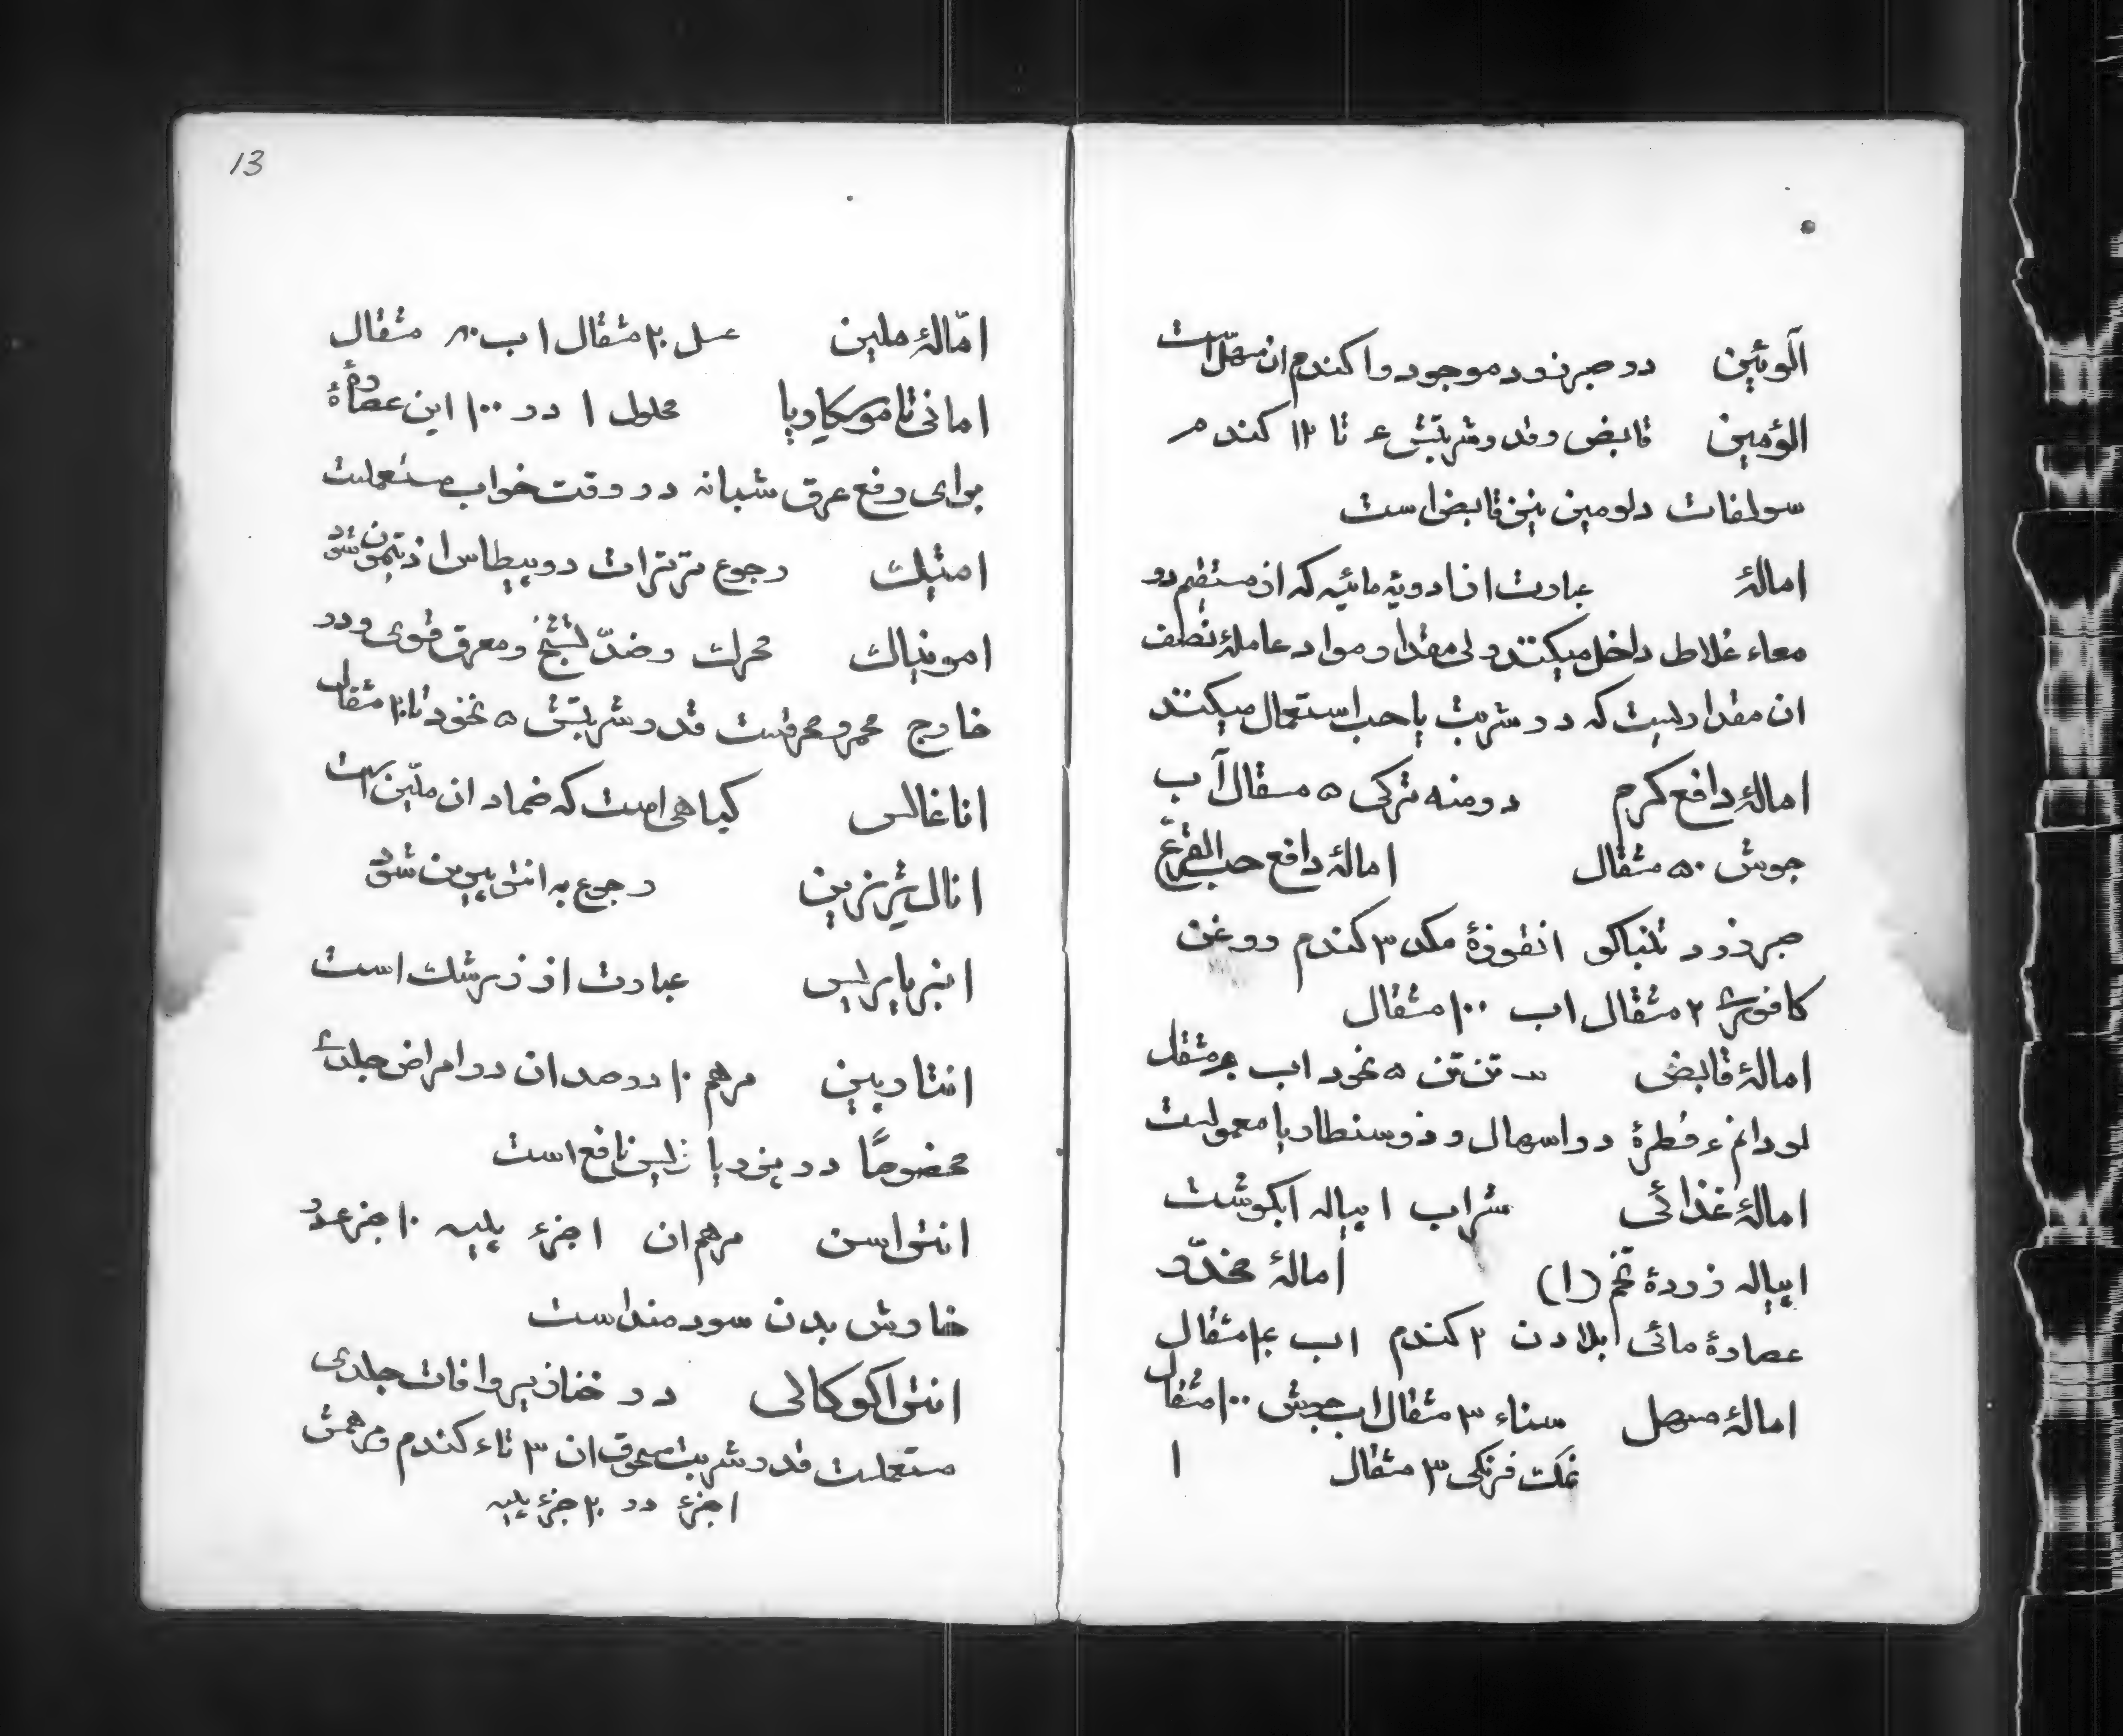 آلوئین در صبر زرد موجود و ا کندم ان مسهل است
الؤمین قابض و قدر شربتش ۴ تا ۱۲ کندم
سولفات دلومین نیز قابض است
امالهٔ عبارت از ادویه مائیه که از مستقیم در
معاء غلاظ داخل میکنند ولی مقدار و مواد عاملهٔ نصف
ان مقداریست که در شربت یا حب استعمال میکنند
امالهٔ دافع کرم درمنه ترکی ۵ مثقال آب
جوش ۵۰ مثقال امالهٔ دافع حب القرع
صبر زرد تنباکو انقوزهٔ مکد ۳ کندم روغن
کافوری ۲ مثقال اب ۱۰۰ مثقال
امالهٔ قابض تن تن ۵ نخود اب مثقال
لودانم ۴ قطرهٔ در اسهال و ذوسنطاریا معمولست
امالهٔ غذائی شراب ا پیاله ابکوشت
ا پیاله زردهٔ تخم (۱) امالهٔ مخدّر
عصارهٔ مائی ابلادن ۲ کندم اب ۴۰ مثقال
امالهٔ مسهل سناء ۳ مثقال اب جوش ۱۰۰ مثقال
نمک فرنکی ۳ مثقال ا
13
امّالهٔ ملین عسل ۲۰ مثقال اب ۸۰ مثقال
امانی تا موسکاریا محلول ۱ در ۱۰۰ این عصارهٔ
برای رفع عرق شبانه در وقت خواب مستعملست
امتیک رجوع ترترات دوپطاس انتیموان شود
امونیاک محرک و ضدّ تشنج و معرق قوی و در
خارج محمر و محرقست قدر شربتش ۵ نخود تا ۲ مثقال
اناغالس کیاهی است که ضماد ان ملیّن است
انال ژزین رجوع به انتی پیرین شود
انبرباریس عبارت از زرشک است
انتاربین مرهم ۱۰ در صد ان در امراض جلدی
مخصوصًا در پزوریازیس نافع است
انتی اسن مرهم ان ۱ جزء پلیه ۱۰ جزء در
خارش بدن سودمند است
انتی اکوکالی در خنازیر و افات جلدی
مستعملست قدر شربت مسحوق ان ۳ تا ۴ کندم و مرهمش
۱ جزء در ۲۰ جزء پلیه